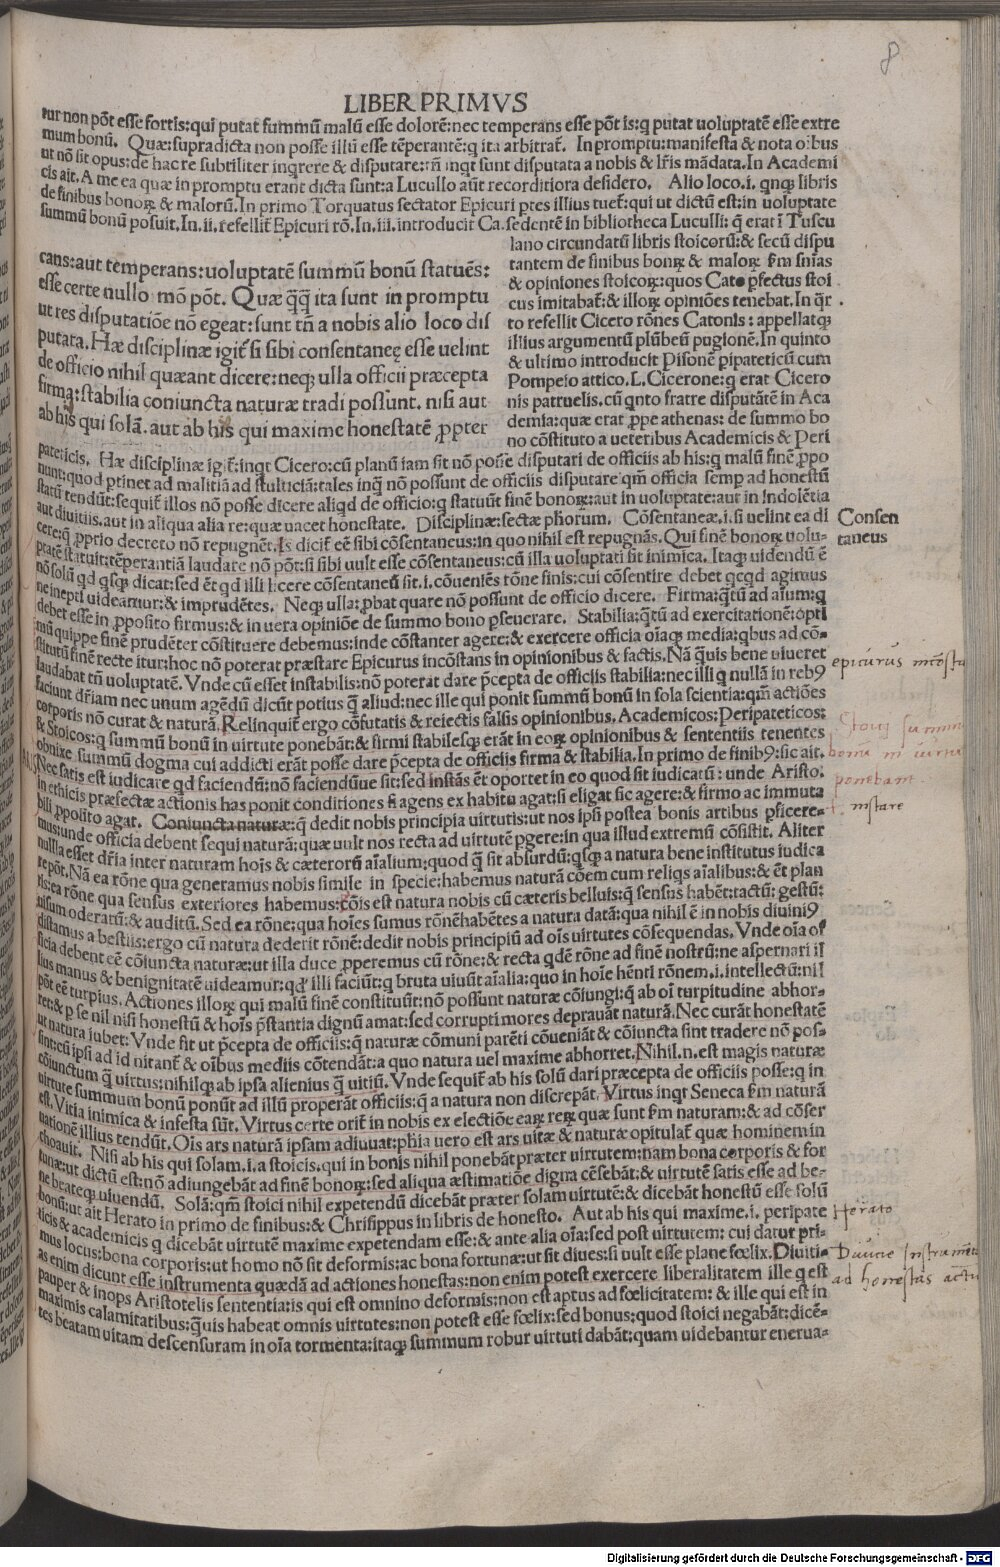 8
LIBER PRIMVS
tur non põt esse fortis:qui putat summũ malũ esse dolorẽ:nec temperans esse põt is:q putat uoluptatẽ esse extre
mum bonũ. Quæ:supradicta non posse illũ esse tẽperantẽ:q ita arbitrat̃. In promptu:manifesta & nota oĩbus
ut nõ sit opus:de hac re subtiliter inqrere & disputare:tñ inqt sunt disputata a nobis & lr̃is mãdata. In Academi
cis ait. A me ea quæ in promptu erant dicta sunt:a Lucullo aũt reconditiora desidero. Alio loco.i. qnqꝫ libris
de finibus bonoꝝ & malorũ. In primo Torquatus sectator Epicuri ptes illius tuet̃:qui ut dictũ est:in uoluptate
summũ bonũ posuit. In.ii.refellit Epicuri rõ. In.iii.introducit Ca. sedentẽ in bibliotheca Luculli: q̃ erat ĩ Tuscu
lano circundatũ libris stoicorũ:& secũ dispu
tantem de finibus bonꝝ & maloꝝ f̃m sñias
& opiniones stoicoꝝ:quos Cato pfectus stoi
cus imitabat̃:& illoꝝ opiniões tenebat. In q̃r
to refellit Cicero rõnes Catonis: appellatqꝫ
illius argumentũ plũbeũ pugionẽ. In quinto
& ultimo introducit Pisonẽ pipateticũ cum
Pompeio attico. L. Cicerone:q erat Cicero
nis patruelis. cũ qnto fratre disputãtẽ in Aca
demia:quæ erat ꝓpe athenas: de summo bo
no cõstituto a ueteribus Academicis & Peri
cans:aut temperans:uoluptatẽ summũ bonũ statuẽs:
esse certe nullo mõ põt. Quæ q̃q̃ ita sunt in promptu
ut res disputatiõe nõ egeat: sunt tñ a nobis alio loco dis
putata. Hæ disciplinæ igit̃ si sibi consentaneę esse uelint
de officio nihil quæant dicere:neqꝫ ulla officii præcepta
firma:stabilia coniuncta naturæ tradi possunt. nisi aut
ab his qui solã. aut ab his qui maxime honestatẽ ꝓpter
pateticis. Hæ disciplinæ igit̃:inqt Cicero:cũ planũ iam sit nõ posse disputari de officiis ab his:q malũ finẽ ꝓpo
nunt:quod ptinet ad malitiã ad stulticiã:tales inq̃ nõ possunt de officiis disputare qm̃ officia semp ad honestũ
statũ tendũt:sequit̃ illos nõ posse dicere aliqd de officio:q statuũt finẽ bonoꝝ:aut in uoluptate:aut in Indolẽtia
aut diuitiis.aut in aliqua alia re:quæ uacet honestate. Disciplinæ:sectæ ph̃orum. Cõsentaneæ.i.si uelint ea di
cere:q̃ pprio decreto nõ repugnẽt. Is dicit̃ eẽ sibi cõsentaneus:in quo nihil est repugnãs. Qui finẽ bonoꝝ uolu-
ptatẽ statuit:tẽperantiã laudare nõ põt:si sibi uult esse cõsentaneus:cũ illa uoluptati sit inimica. Itaqꝫ uidendũ ẽ
nõ solũ qd qsqꝫ dicat:sed ẽt qd illi licere cõsentaneũ sit.i.cõueniẽs rõne finis:cui cõsentire debet qcqd agimus
ne inepti uideamur:& imprudẽtes. Neqꝫ ulla:ꝓbat quare nõ possunt de officio dicere. Firma:q̃tũ ad aĩum:q
debet esse in ꝓposito firmus:& in uera opiniõe de summo bono pseuerare. Stabilia:q̃tũ ad exercitationẽ:opti
mũ quippe finẽ prudẽter cõstituere debemus:inde cõstanter agere:& exercere officia oĩaqꝫ media:qbus ad cõ-
stitutũ finẽ recte itur:hoc nõ poterat præstare Epicurus incõstans in opinionibus & factis. Nã q̃uis bene uiueret
laudabat tñ uoluptatẽ. Vnde cũ esset instabilis:nõ poterat dare p̃cepta de officiis stabilia:nec illi q nullã in rebꝰ
faciunt dr̃iam nec unum agẽdũ dicũt potius q̃ aliud:nec ille qui ponit summũ bonũ in sola scientia:qm̃ actiões
corporis nõ curat & naturã. Relinquit̃ ergo cõfutatis & reiectis falsis opinionibus. Academicos: Peripateticos:
& Stoicos:q summũ bonũ in uirtute ponebãt:& firmi stabilesqꝫ erãt in eoꝝ opinionibus & sententiis tenentes
obnixe summũ dogma cui addicti erãt posse dare p̃cepta de officiis firma & stabilia. In primo de finibꝰ:sic ait.
Nec satis est iudicare qd faciendũ:nõ faciendũue sit:sed instãs ẽt oportet in eo quod sit iudicatũ: unde Aristo.
in ethicis præfectæ actionis has ponit conditiones si agens ex habitu agat:si eligat sic agere:& firmo ac immuta
bili ꝓposito agat. Coniuncta naturæ:q̃ dedit nobis principia uirtutis:ut nos ipsi postea bonis artibus pficere-
mus:unde officia debent sequi naturã:quæ uult nos recta ad uirtutẽ pgere:in qua illud extremũ cõsistit. Aliter
nulla esset dr̃ia inter naturam hoĩs & cæterorũ aĩalium:quod q̃ sit absurdũ:qsqꝫ a natura bene institutus iudica
re põt. Nã ea rõne qua generamus nobis simile in specie:habemus naturã cõem cum reliqs aĩalibus:& ẽt plan
tis:ea rõne qua sensus exteriores habemus:cõis est natura nobis cũ cæteris belluis:q̃ sensus habẽt:tactũ: gestũ:
uisum odoratũ:& auditũ. Sed ea rõne:qua hoĩes sumus rõnẽ habẽtes a natura datã:qua nihil ẽ in nobis diuiniꝰ
distamus a bestiis:ergo cũ natura dederit rõnẽ:dedit nobis principiũ ad oĩs uirtutes cõsequendas. Vnde oĩa of
ficia debent eẽ cõiuncta naturæ:ut illa duce ꝓperemus cũ rõne:& recta qdẽ rõne ad finẽ nostrũ:ne aspernari il
lius manus & benignitatẽ uideamur:qd̃ illi faciũt:q bruta uiuũt aĩalia:quo in hoĩe hẽnti rõnem.i.intellectũ:nil
põt eẽ turpius. Actiones illoꝝ qui malũ finẽ constituũt:nõ possunt naturæ cõiungi:q̃ ab oĩ turpitudine abhor-
ret:& p se nil nisi honestũ & hoĩs p̃stantia dignũ amat:sed corrupti mores deprauãt naturã. Nec curãt honestatẽ
ut natura iubet: Vnde fit ut p̃cepta de officiis:q̃ naturæ cõmuni parẽti cõueniãt & cõiuncta sint tradere nõ pos-
sint:cũ ipsi ad id nitant̃ & oĩbus mediis cõtendãt:a quo natura uel maxime abhorret. Nihil.n.est magis naturæ
cõiunctum q̃ uirtus:nihilqꝫ ab ipsa alienius q̃ uitiũ. Vnde sequit̃ ab his solũ dari præcepta de officiis posse:q in
uirtute summum bonũ ponũt ad illũ properãt officiis:q̃ a natura non discrepãt. Virtus inqt Seneca f̃m naturã
est. Vitia inimica & infesta sũt. Virtus certe orit̃ in nobis ex electiõe eaꝝ reꝝ quæ sunt f̃m naturam:& ad cõser
uationẽ illius tendũt. Oĩs ars naturã ipsam adiuuat:ph̃ia uero est ars uitæ & naturæ opitulat̃ quæ hominem in
choauit. Nisi ab his qui solam.i.a stoicis.qui in bonis nihil ponebãt præter uirtutem:nam bona corporis & for
tunæ:ut dictũ est:nõ adiungebãt ad finẽ bonoꝝ:sed aliqua æstimatiõe digna cẽsebãt:& uirtutẽ satis esse ad be-
ne beateqꝫ uiuendũ. Solã:qm̃ stoici nihil expetendũ dicebãt præter solam uirtutẽ:& dicebãt honestũ esse solũ
bonũ:ut ait Herato in primo de finibus:& Chrisippus in libris de honesto. Aut ab his qui maxime.i. peripate
ticis & academicis q dicebãt uirtutẽ maxime expetendam esse:& ante alia oĩa:sed post uirtutem: cui datur pri-
mus locus:bona corporis:ut homo nõ sit deformis:ac bona fortunæ:ut sit diues:si uult esse plane fœlix. Diuiti-
as enim dicunt esse instrumenta quædã ad actiones honestas:non enim potest exercere liberalitatem ille q est
pauper & inops Aristotelis sententia:is qui est omnino deformis:non est aptus ad fœlicitatem: & ille qui est in
maximis calamitatibus:q̃uis habeat omnis uirtutes:non potest esse fœlix:sed bonus:quod stoici negabãt:dicẽ-
tes beatam uitam descensuram in oĩa tormenta:itaqꝫ summum robur uirtuti dabãt:quam uidebantur enerua-
Consen
taneus
epicurus incõsta
Stoici summu
bonu in uirtu
ponebant
instare
Herato
Diuitie Instrumẽta
ad honestas actio
Digitalisierung gefördert durch die Deutsche Forschungsgemeinschaft - DFG